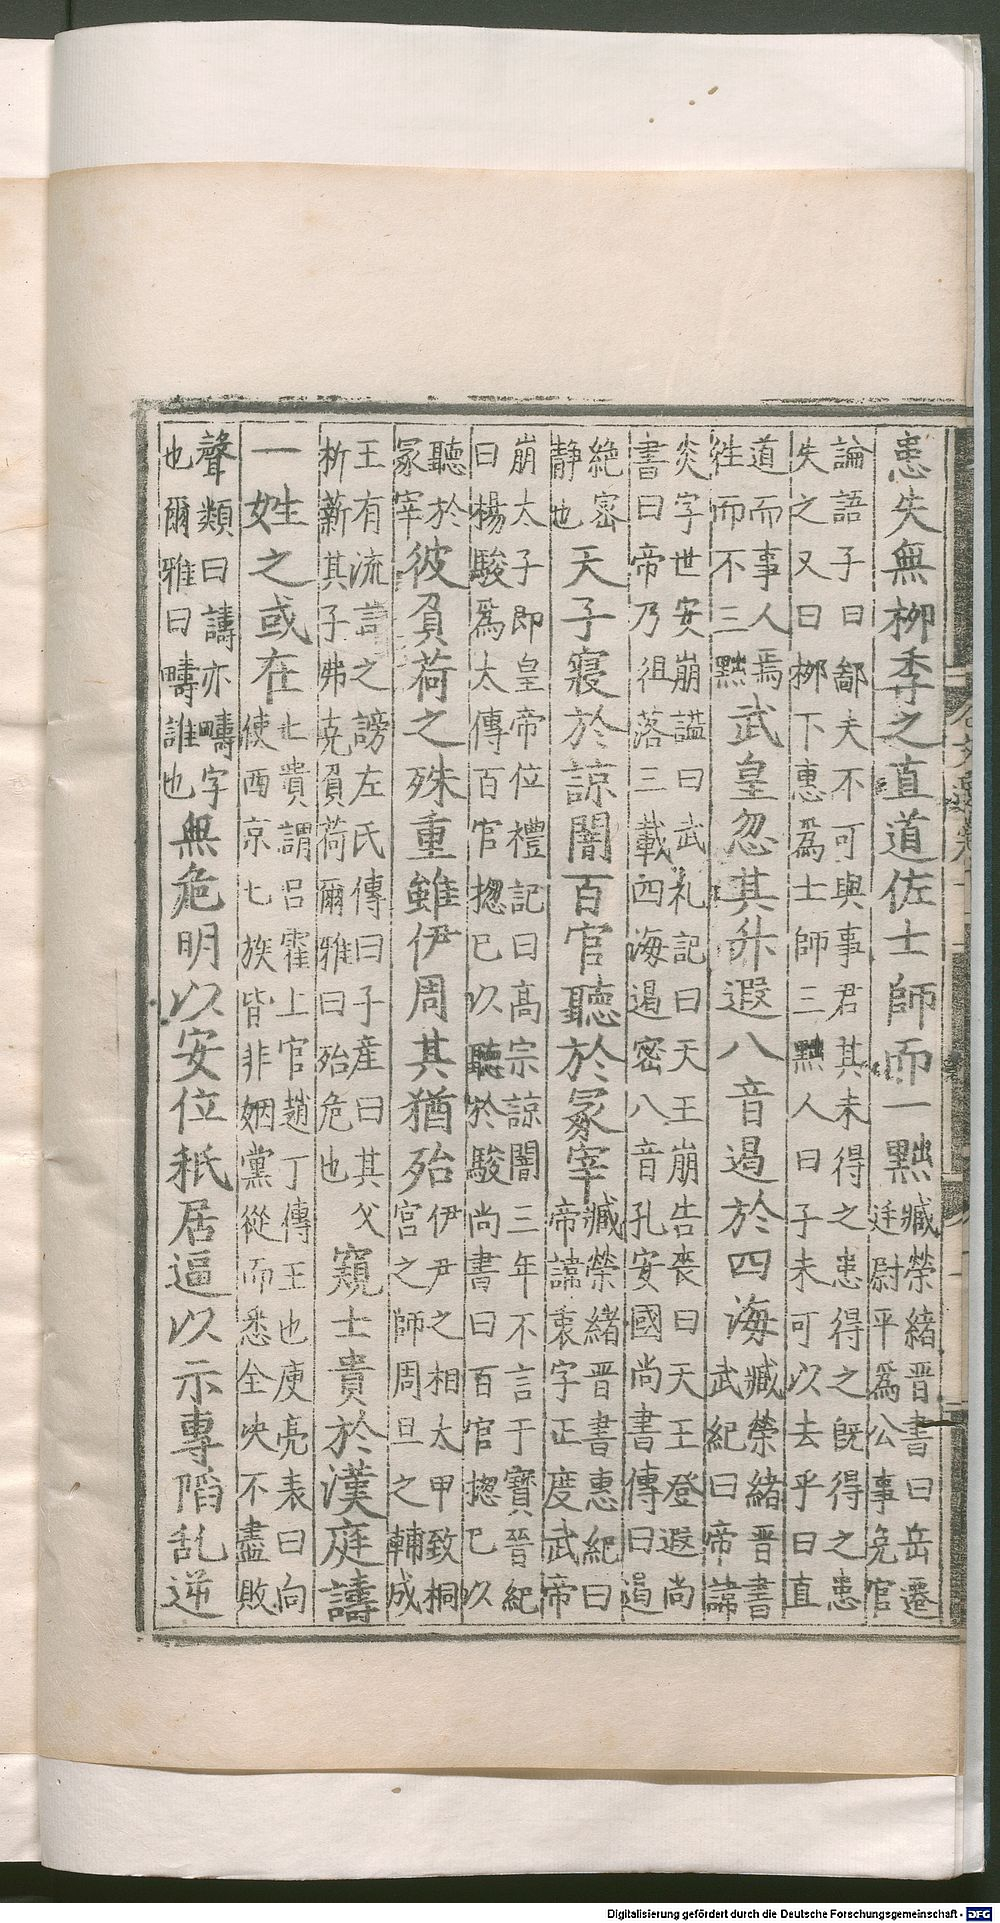 患失無栁季之直道佐士師而一黜
臧榮緒晉書曰岳遷
廷尉平爲公事免官
論語子曰鄙夫不可與事君其未得之患得之旣得之患
失之又曰栁下惠爲士師三黜人曰子未可以去乎曰直
道而事人焉
往而不三黜
武皇忽其升遐八音遏於四海
臧榮緒晉書
武紀曰帝諱
炎字世安崩謚曰武礼記曰天王崩告喪曰天王登遐尚
書曰帝乃徂落三載四海遏密八音孔安國尚書傳曰遏
絶密
静也
天子寢於諒闇百官聽於冢宰
臧榮緒晉書惠紀曰
帝諱衷字正度武帝
崩太子即皇帝位禮記曰髙宗諒闇三年不言于寶晉紀
曰楊駿爲太傅百官揔已以聽於駿尚書曰百官揔已以
聽於
冢宰
彼負荷之殊重雖伊周其猶殆
伊尹之相太甲致桐
宫之師周旦之輔成
王有流言之謗左氏傳曰子産曰其父
析薪其子弗克負荷爾雅曰殆危也
窺士貴於漢庭譸
一姓之或在
七貴謂呂霍上官趙丁傅王也庾亮表曰向
使西京七族皆非姻黨從而悉全决不盡敗
聲類曰譸亦疇字
也爾雅曰疇誰也
無危明以安位秖居逼以示專陷乱逆
Digitalisierung gefördert durch die Deutsche Forschungsgemeinschaft - DFG